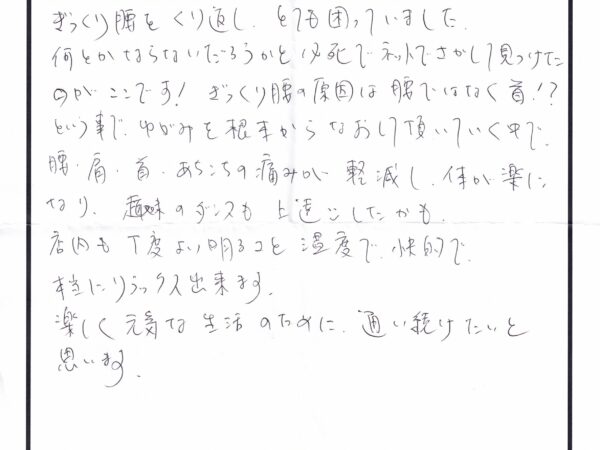 ぎっくり腰をくり返し、とても困っていました。
何とかならないだろうかと必死でネットでさがして見つけた
のがここです！ ぎっくり腰の原因は腰ではなく首！？
という事で、ゆがみを根本からなおして頂いていく中で、
腰・肩・首・あちこちの痛みが軽減し、体が楽に
なり、趣味のダンスも上達したかも。
店内も丁度よい明るさと温度で、快的で、
本当にリラックス出来ます。
楽しく元気な生活のために、通い続けたいと
思います。